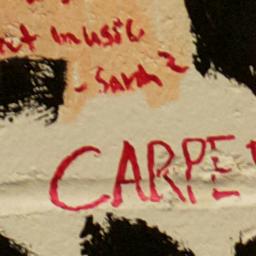 ct music
- Sarah 2
CARPE